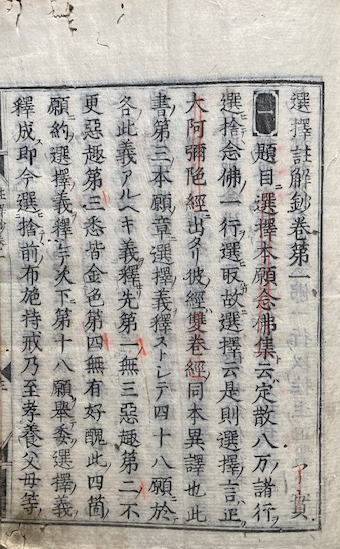 選擇註解鈔卷第一
題目選擇本願念佛集云定散八万諸行
選捨念佛一行選取故選擇云是則選擇言正
大阿彌陀經出タリ彼經雙卷經同本異譯也此
書第三本願章選擇義釋ストレテ四十八願於
各此義アルヘキ義釋先第一無三惡趣第二不
更惡趣第三悉皆金色第四無有好醜此四箇
願約選擇義釋次下第十八願舉委選擇義
釋成即今選捨前布施持戒乃至孝養父母等
了賀